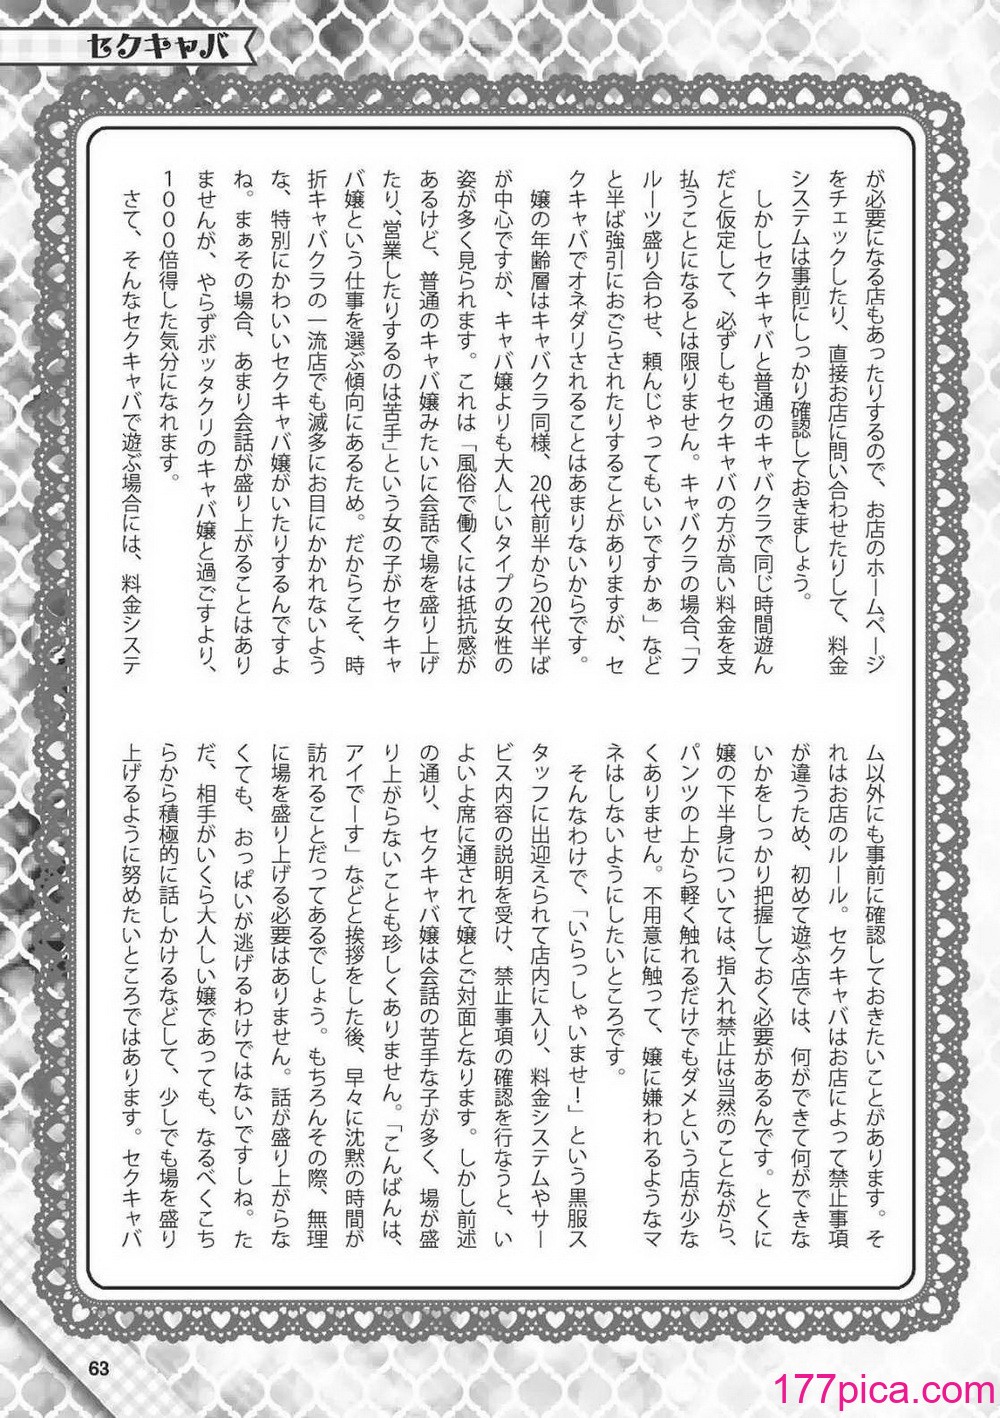 セクキャバ
が必要になる店もあったりするので、お店のホームページ
をチェックしたり、直接お店に問い合わせたりして、料金
システムは事前にしっかり確認しておきましょう。
しかしセクキャバと普通のキャバクラで同じ時間遊ん
だと仮定して、必ずしもセクキャバの方が高い料金を支
払うことになるとは限りません。キャバクラの場合、「フ
ルーツ盛り合わせ、頼んじゃってもいいですかぁ」など
と半ば強引におごらされたりすることがありますが、セ
クキャバでオネダリされることはあまりないからです。
嬢の年齢層はキャバクラ同様、20代前半から20代半ば
が中心ですが、キャバ嬢よりも大人しいタイプの女性の
姿が多く見られます。これは「風俗で働くには抵抗感が
あるけど、普通のキャバ嬢みたいに会話で場を盛り上げ
たり、営業したりするのは苦手」という女の子がセクキャ
バ嬢という仕事を選ぶ傾向にあるため。だからこそ、時
折キャバクラの一流店でも滅多にお目にかかれないよう
な、特別にかわいいセクキャバ嬢がいたりするんですよ
ね。まぁその場合、あまり会話が盛り上がることはあり
ませんが、やらずボッタクリのキャバ嬢と過ごすより、
1000倍得した気分になれます。
さて、そんなセクキャバで遊ぶ場合には、料金システ
ム以外にも事前に確認しておきたいことがあります。そ
れはお店のルール。セクキャバはお店によって禁止事項
が違うため、初めて遊ぶ店では、何ができて何ができな
いかをしっかり把握しておく必要があるんです。とくに
嬢の下半身については、指入れ禁止は当然のことながら、
パンツの上から軽く触れるだけでもダメという店が少な
くありません。不用意に触って、嬢に嫌われるようなマ
ネはしないようにしたいところです。
そんなわけで、「いらっしゃいませ！」という黒服ス
タッフに出迎えられて店内に入り、料金システムやサー
ビス内容の説明を受け、禁止事項の確認を行なうと、い
よいよ席に通されて嬢とご対面となります。しかし前述
の通り、セクキャバ嬢は会話の苦手な子が多く、場が盛
り上がらないことも珍しくありません。「こんばんは、
アイでーす」などと挨拶をした後、早々に沈黙の時間が
訪れることだってあるでしょう。もちろんその際、無理
に場を盛り上げる必要はありません。話が盛り上がらな
くても、おっぱいが逃げるわけではないですしね。た
だ、相手がいくら大人しい嬢であっても、なるべくこち
らから積極的に話しかけるなどして、少しでも場を盛り
上げるように努めたいところではあります。セクキャバ
63
177pica.com